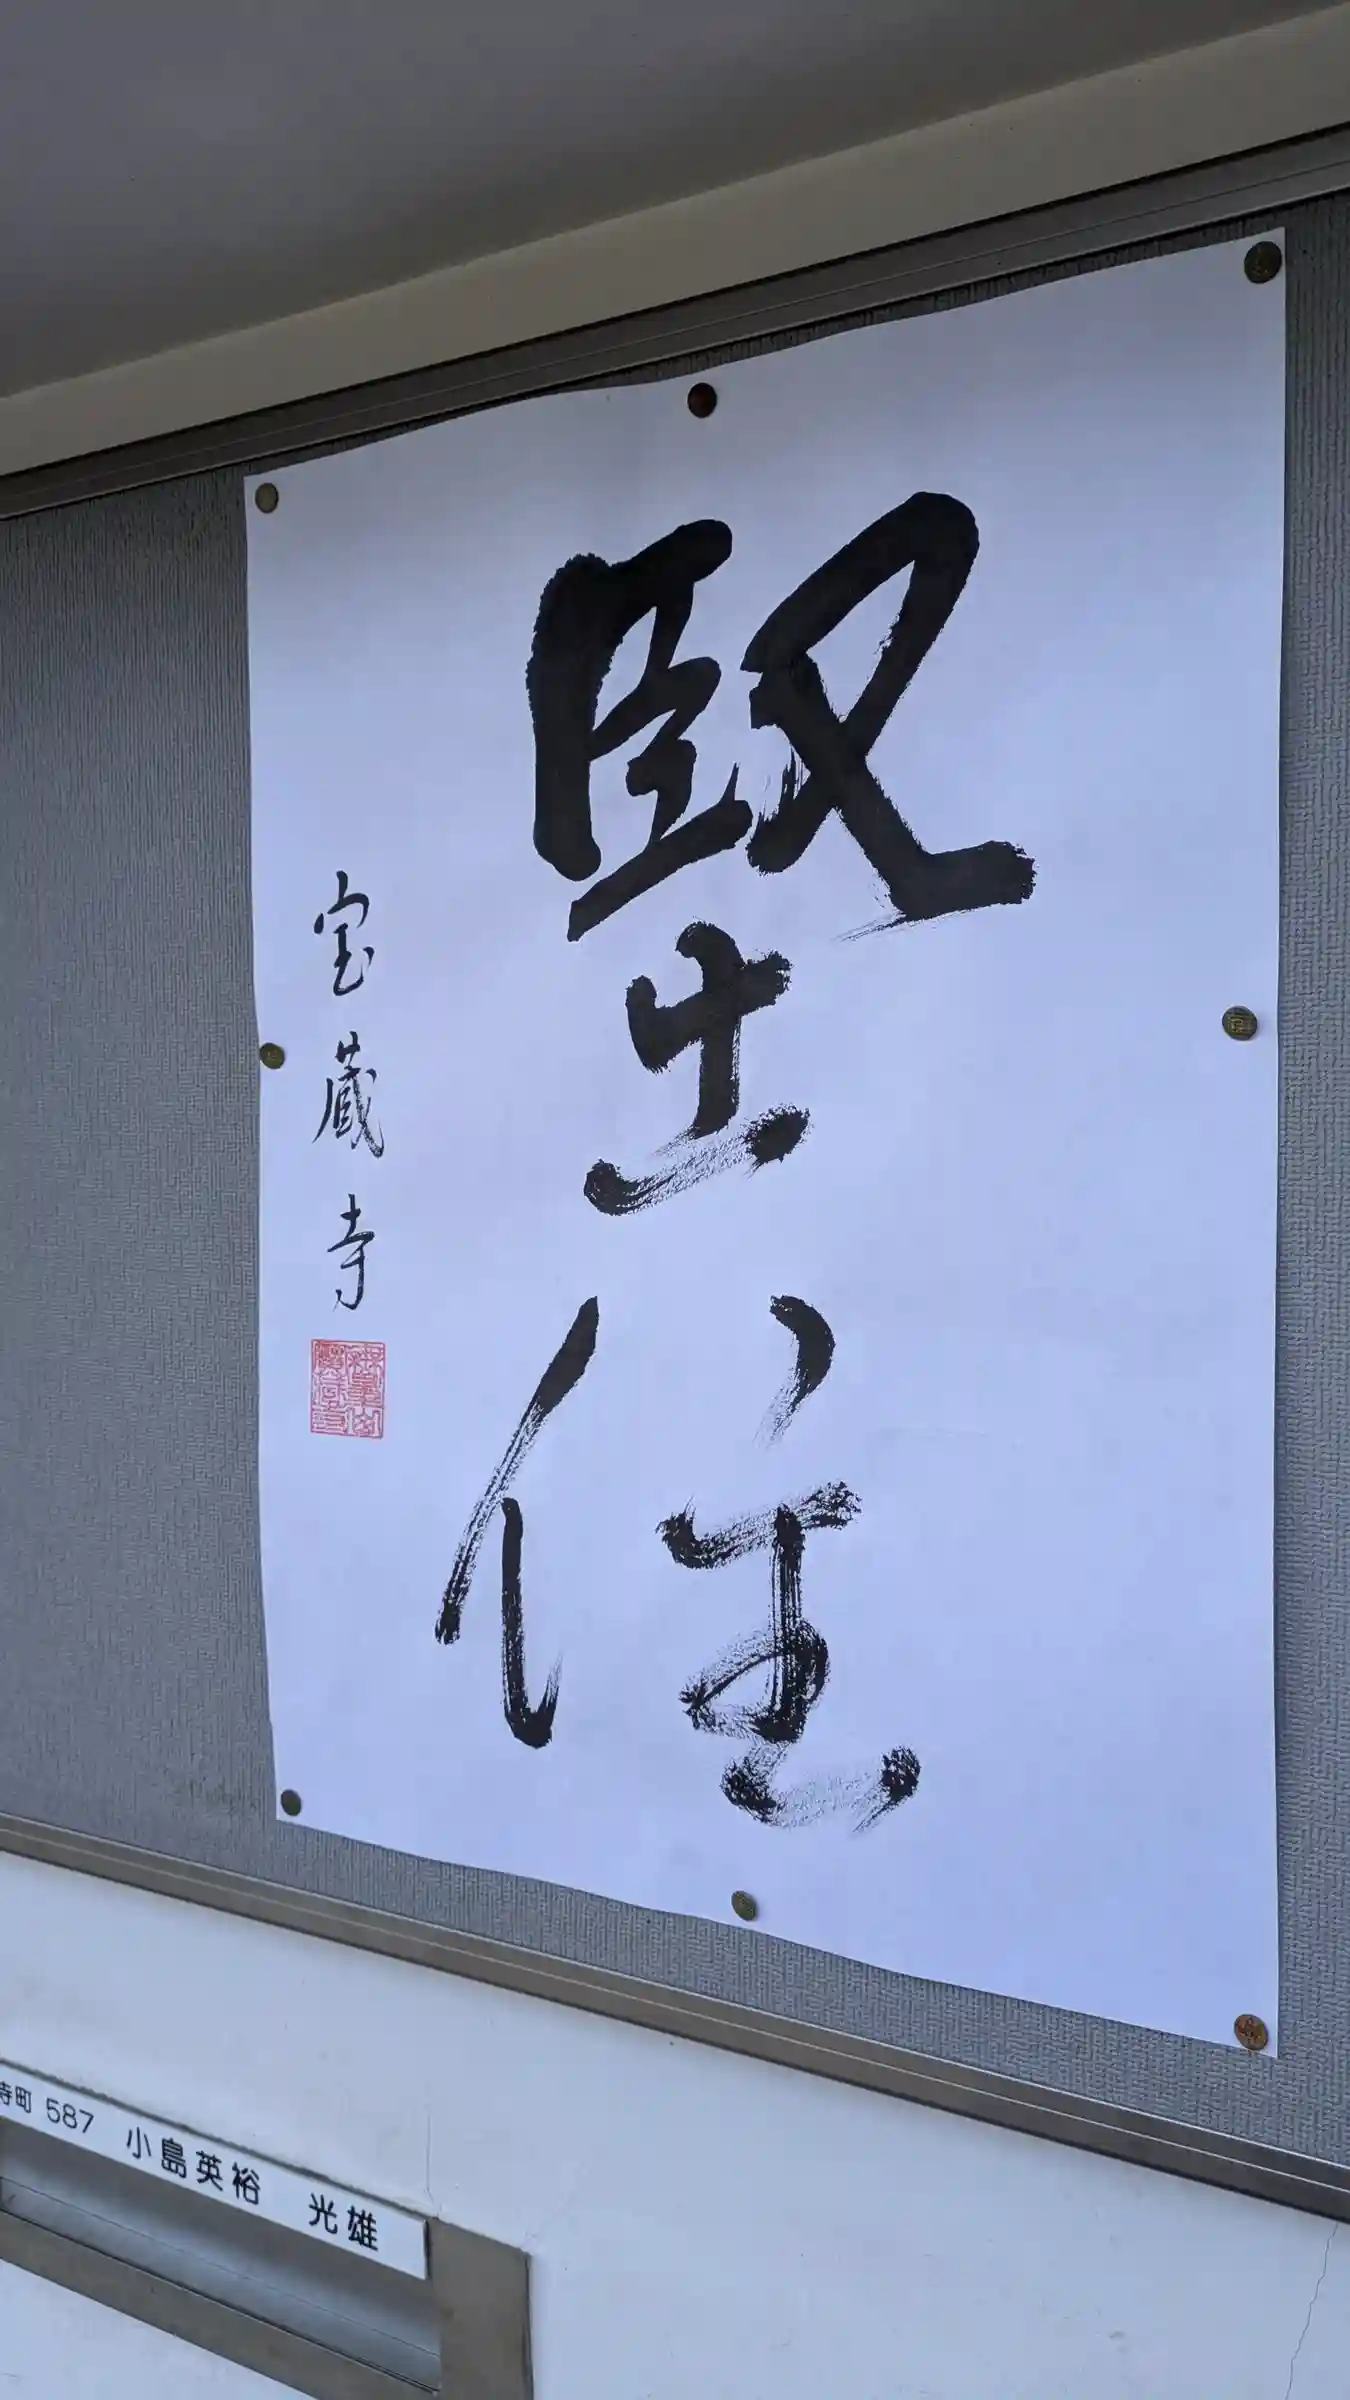 堅住
宝蔵寺
寺町 587 小島英裕 光雄